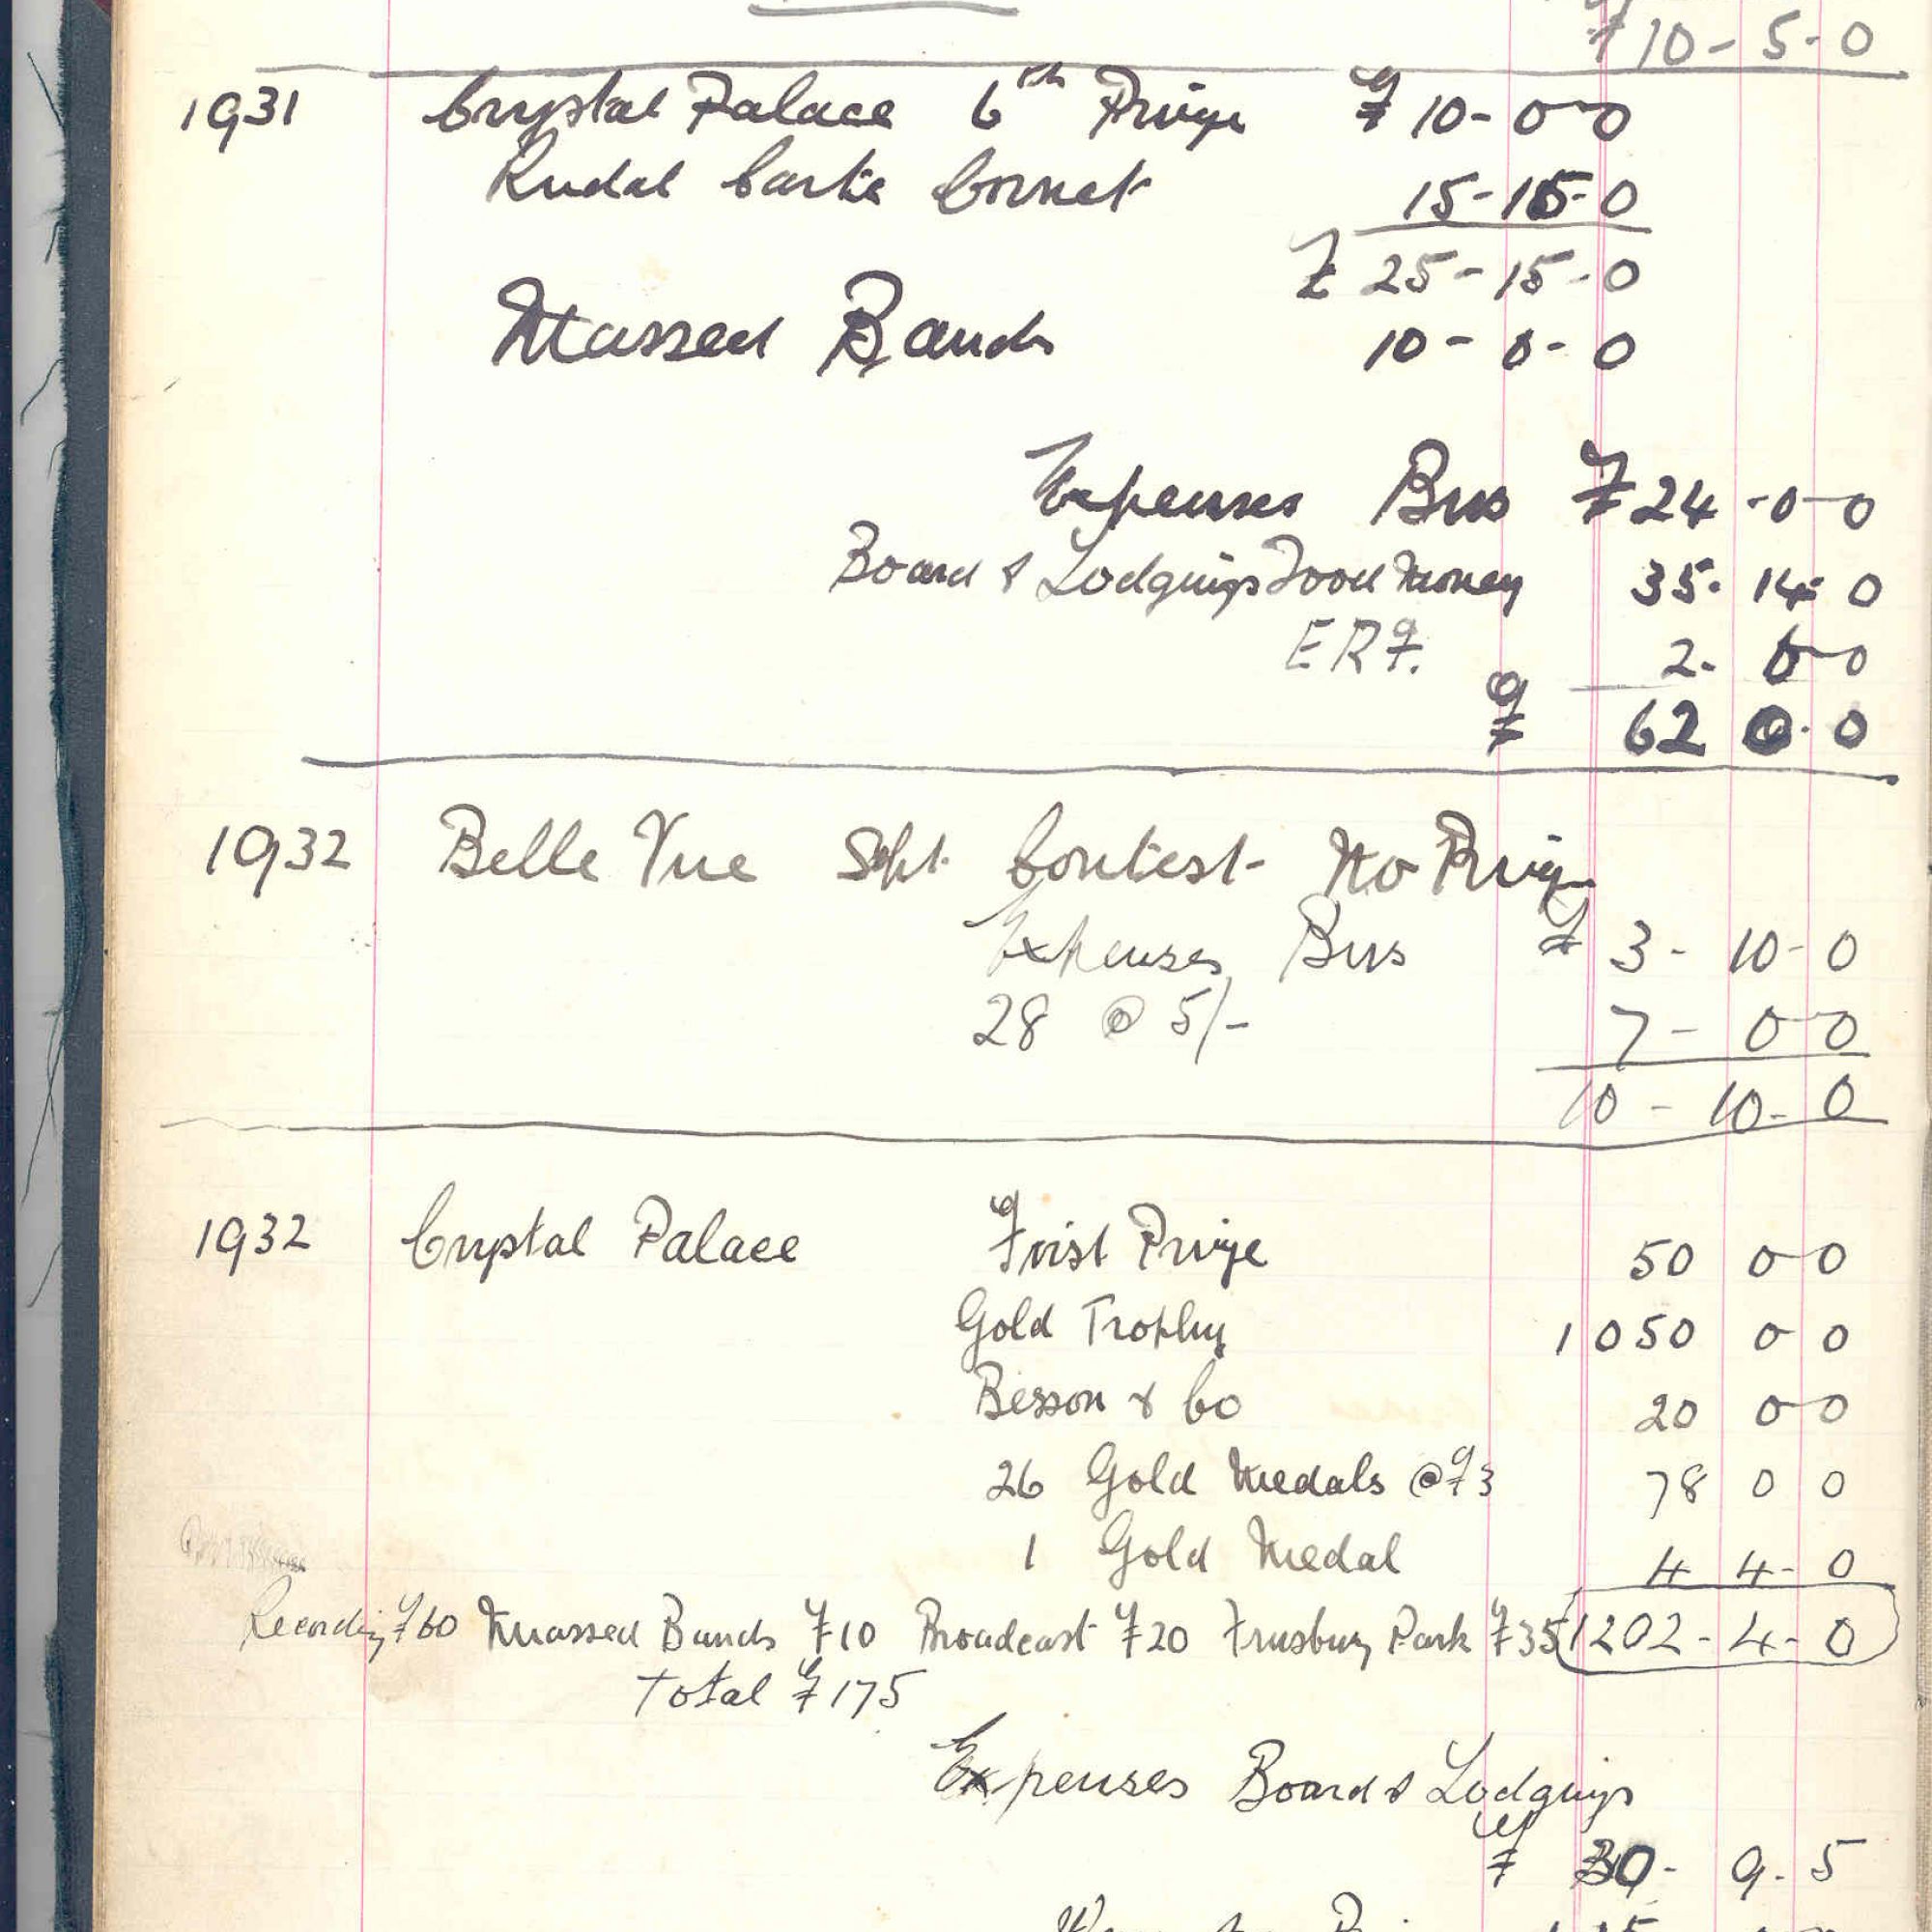 £10-5-0
1931 Crystal Palace 6th Prize £10-0-0
Rudal Carte Cornet 15-15-0
£25-15-0
Massed Bands 10-0-0
Expenses Bus £24-0-0
Board & Lodgings Food Money 35-14-0
E R F. 2- 6-0
£ 62 0-0
1932 Belle Vue Sept Contest No Prize
Expenses Bus £3-10-0
28 @ 5/- 7-0-0
10-10-0
1932 Crystal Palace First Prize 50 0-0
Gold Trophy 1050 0 0
Besson & Co 20 0-0
26 Gold Medals @ £3 78 0 0
1 Gold Medal 4 4-0
Recording £60 Massed Bands £10 Broadcast £20 Finsbury Park £35 1202-4-0
Total £175
Expenses Board & Lodgings
£ 30-9-5